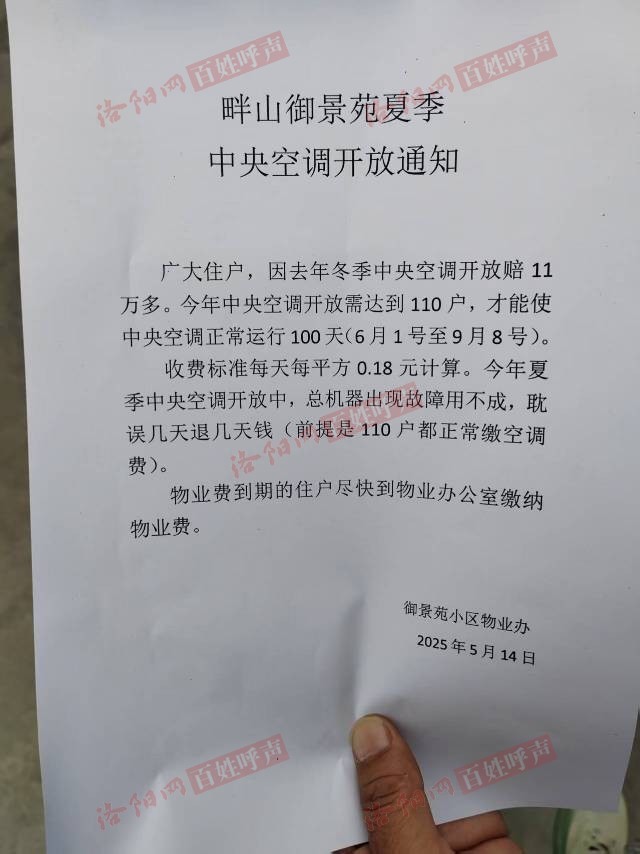 洛阳网 百姓呼声
洛阳网 百姓呼声
畔山御景苑夏季
中央空调开放通知
广大住户，因去年冬季中央空调开放赔 11
万多。今年中央空调开放需达到 110 户，才能使
中央空调正常运行 100 天（6 月 1 号至 9 月 8 号）。
收费标准每天每平方 0.18 元计算。今年夏
季中央空调开放中，总机器出现故障用不成，耽
误几天退几天钱（前提是 110 户都正常缴空调
费）。
洛阳网 百姓呼声
物业费到期的住户尽快到物业办公室缴纳
物业费。
御景苑小区物业办
2025 年 5 月 14 日
洛阳网 百姓呼声
洛阳网 百姓呼声